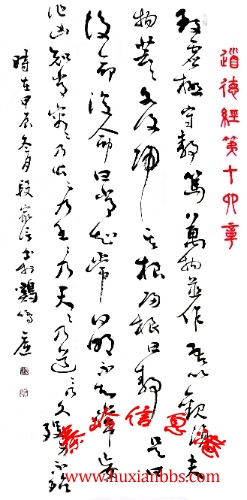 道德經第十六章
致虚極守静篤萬物並作吾以觀復夫
物芸芸各復歸其根歸根曰静是曰
復命復命曰常知常曰明不知常妄
作凶知常容容乃公公乃王王乃天天乃道道乃久殁不殆
時在甲辰冬月段家信书於鷄鸣廬
信息港
www.huxianbbs.com